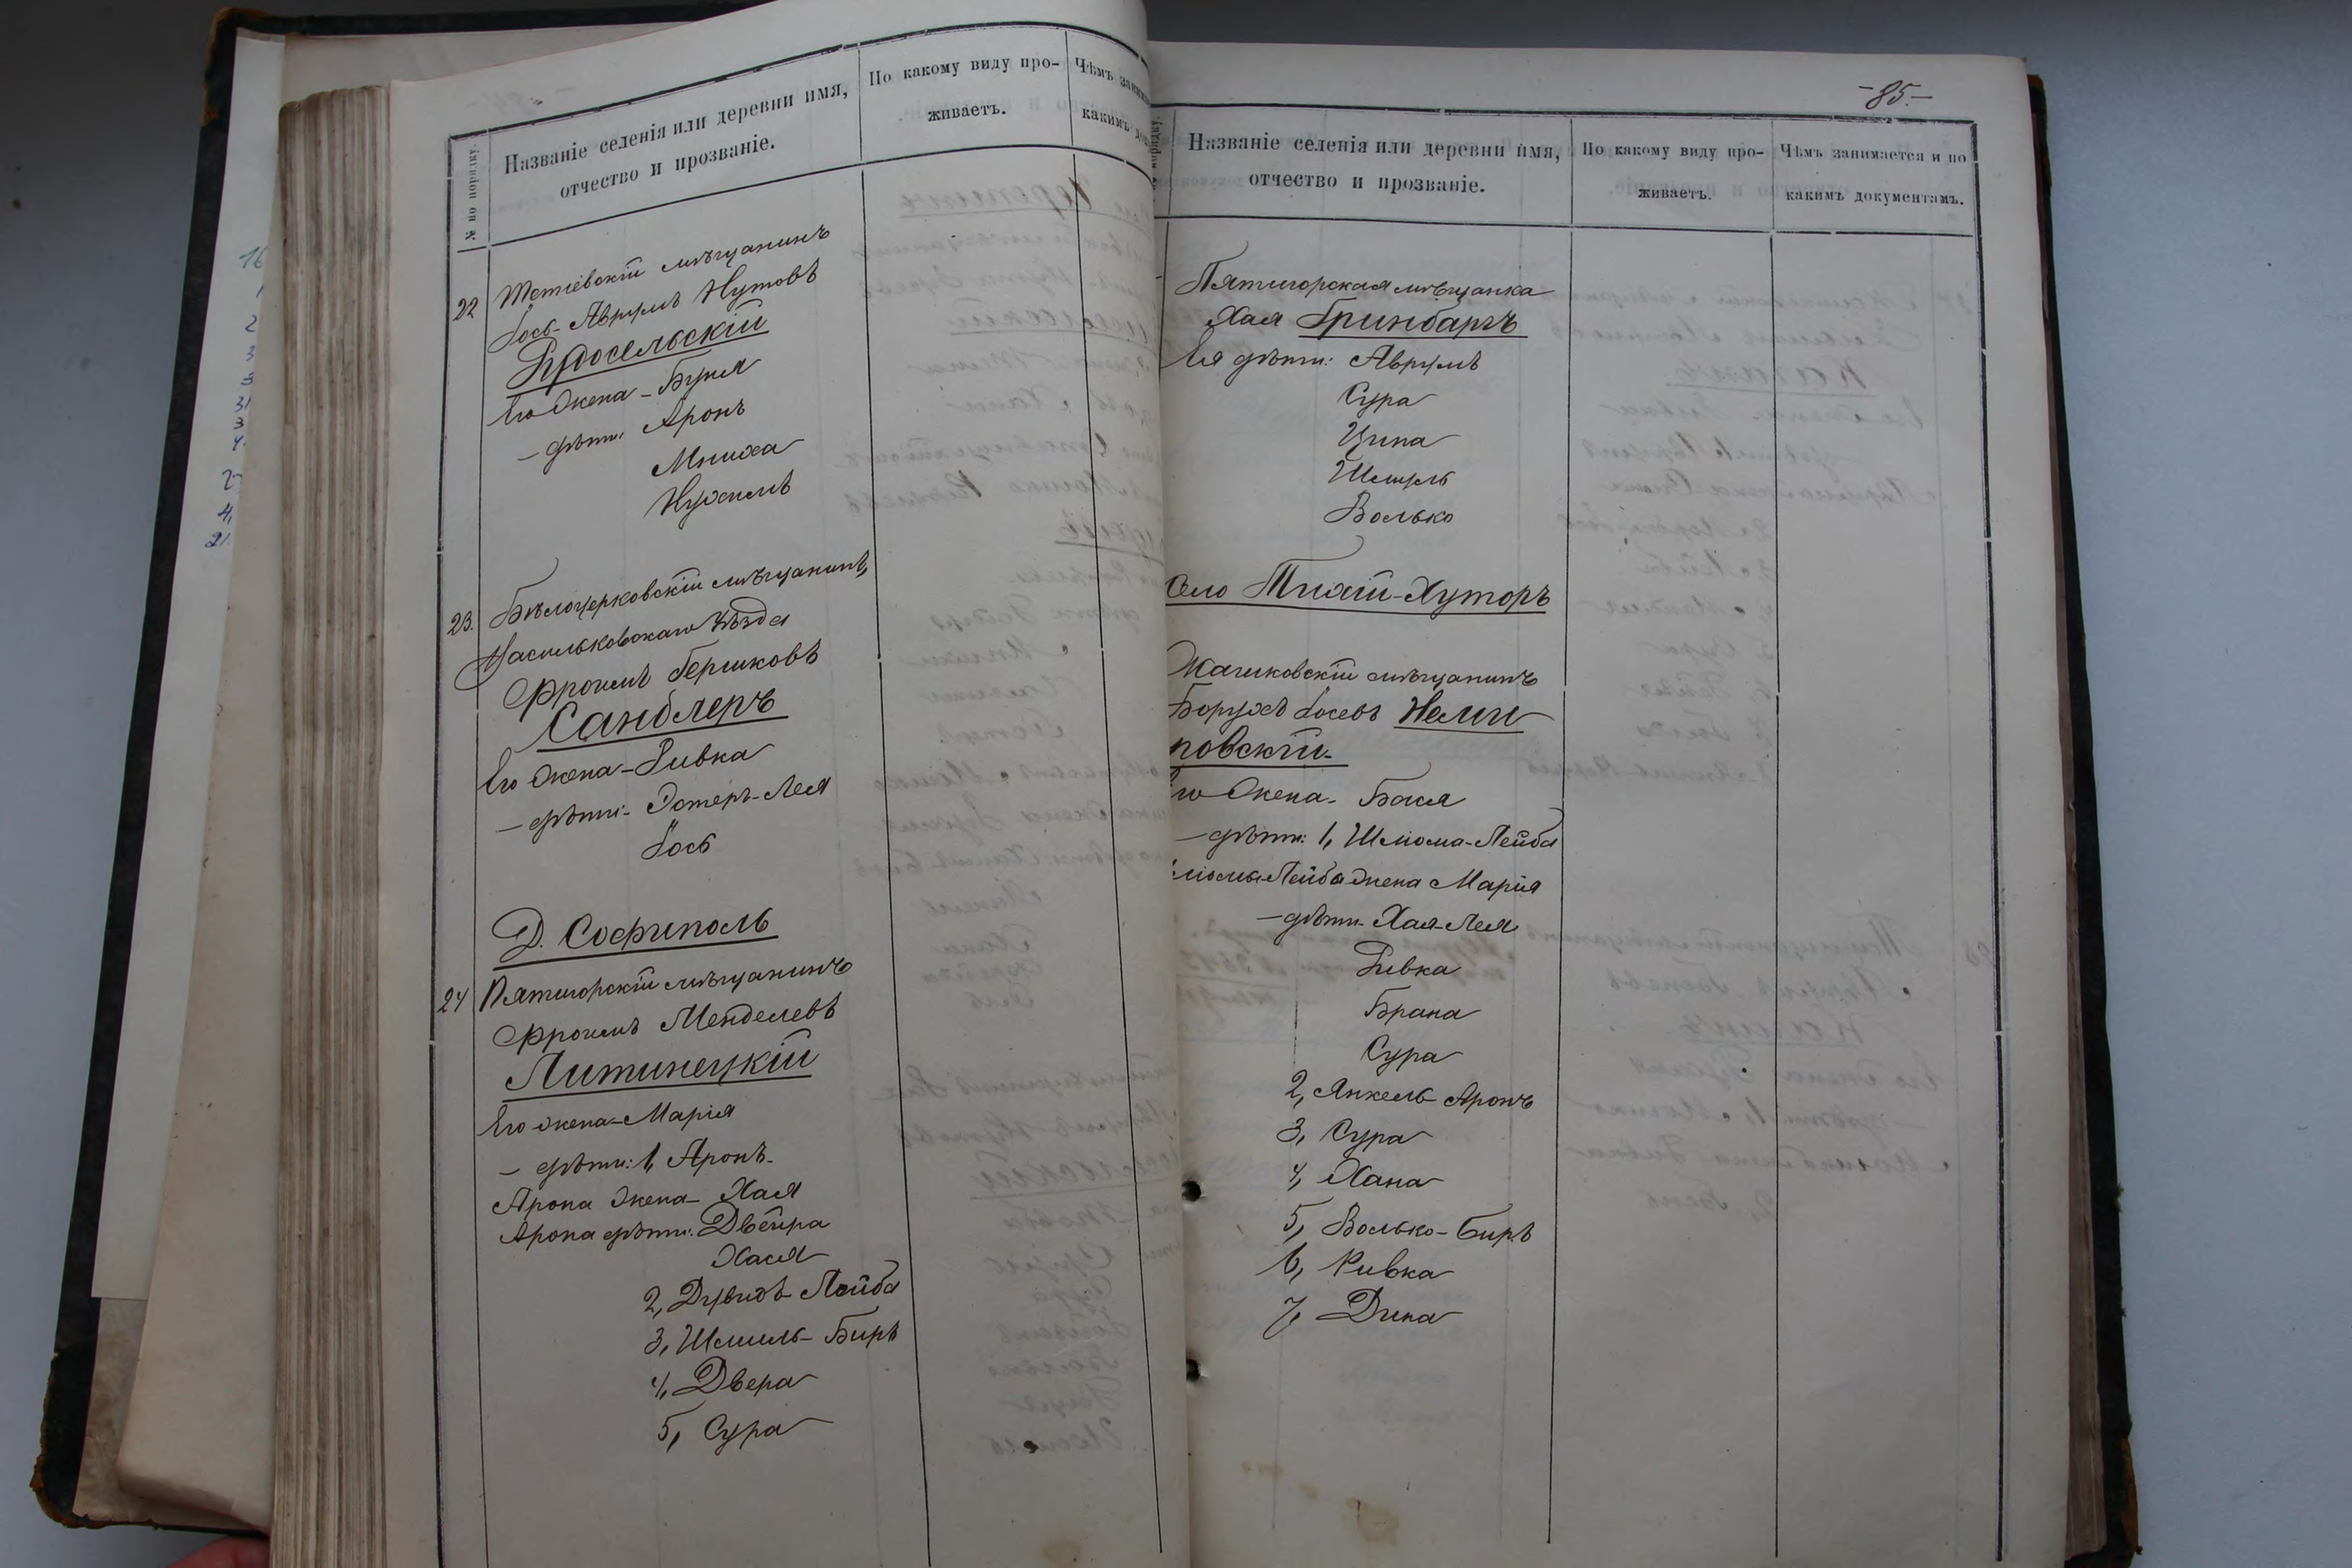 № по порядку.
Названіе селенія или деревни имя,
отчество и прозваніе.
По какому виду про-
живаетъ.
Чѣмъ
какимъ
22 Тетіевскій мѣщанинъ
Іось-Аврумъ Нутовъ
Рудосельскій
Его жена - Буня
- дѣти: Аронъ
Мниха
Нухимъ
23. Бѣлоцерковскій мѣщанинъ,
Васильковскаго уѣзда
Фроимъ Гершковъ
Сандлеръ
Его жена - Ривка
- дѣти - Эстеръ-Лея
Іось
Д. Софиполь
24 Пятигорскій мѣщанинъ
Фроимъ Менделевъ
Литинецкій
Его жена - Марія
- дѣти: 1, Аронъ -
Арона жена - Хая
Арона дѣти: Двейра
Хася
2, Дувидъ-Лейба
3, Шмиль-Биръ
4, Двера
5, Сура
-85.-
Названіе селенія или деревни имя,
отчество и прозваніе.
По какому виду про-
живаетъ.
Чѣмъ занимается и по
какимъ документамъ.
Пятигорская мѣщанка
Хая Гринбаръ
Ея дѣти: Аврумъ
Сура
Ципа
Шмуль
Волько
Село Тихій-Хуторъ
Жашковскій мѣщанинъ
Борухъ Іосевъ Неми
ровскій -
Его жена - Бася
- дѣти: 1, Шліома-Лейба
Шліомы-Лейба жена Марія
- дѣти - Хая-Лея
Ривка
Брана
Сура
2, Янкель-Аронъ
3, Сура
4, Хана
5, Волько-Биръ
6, Ривка
7, Дина